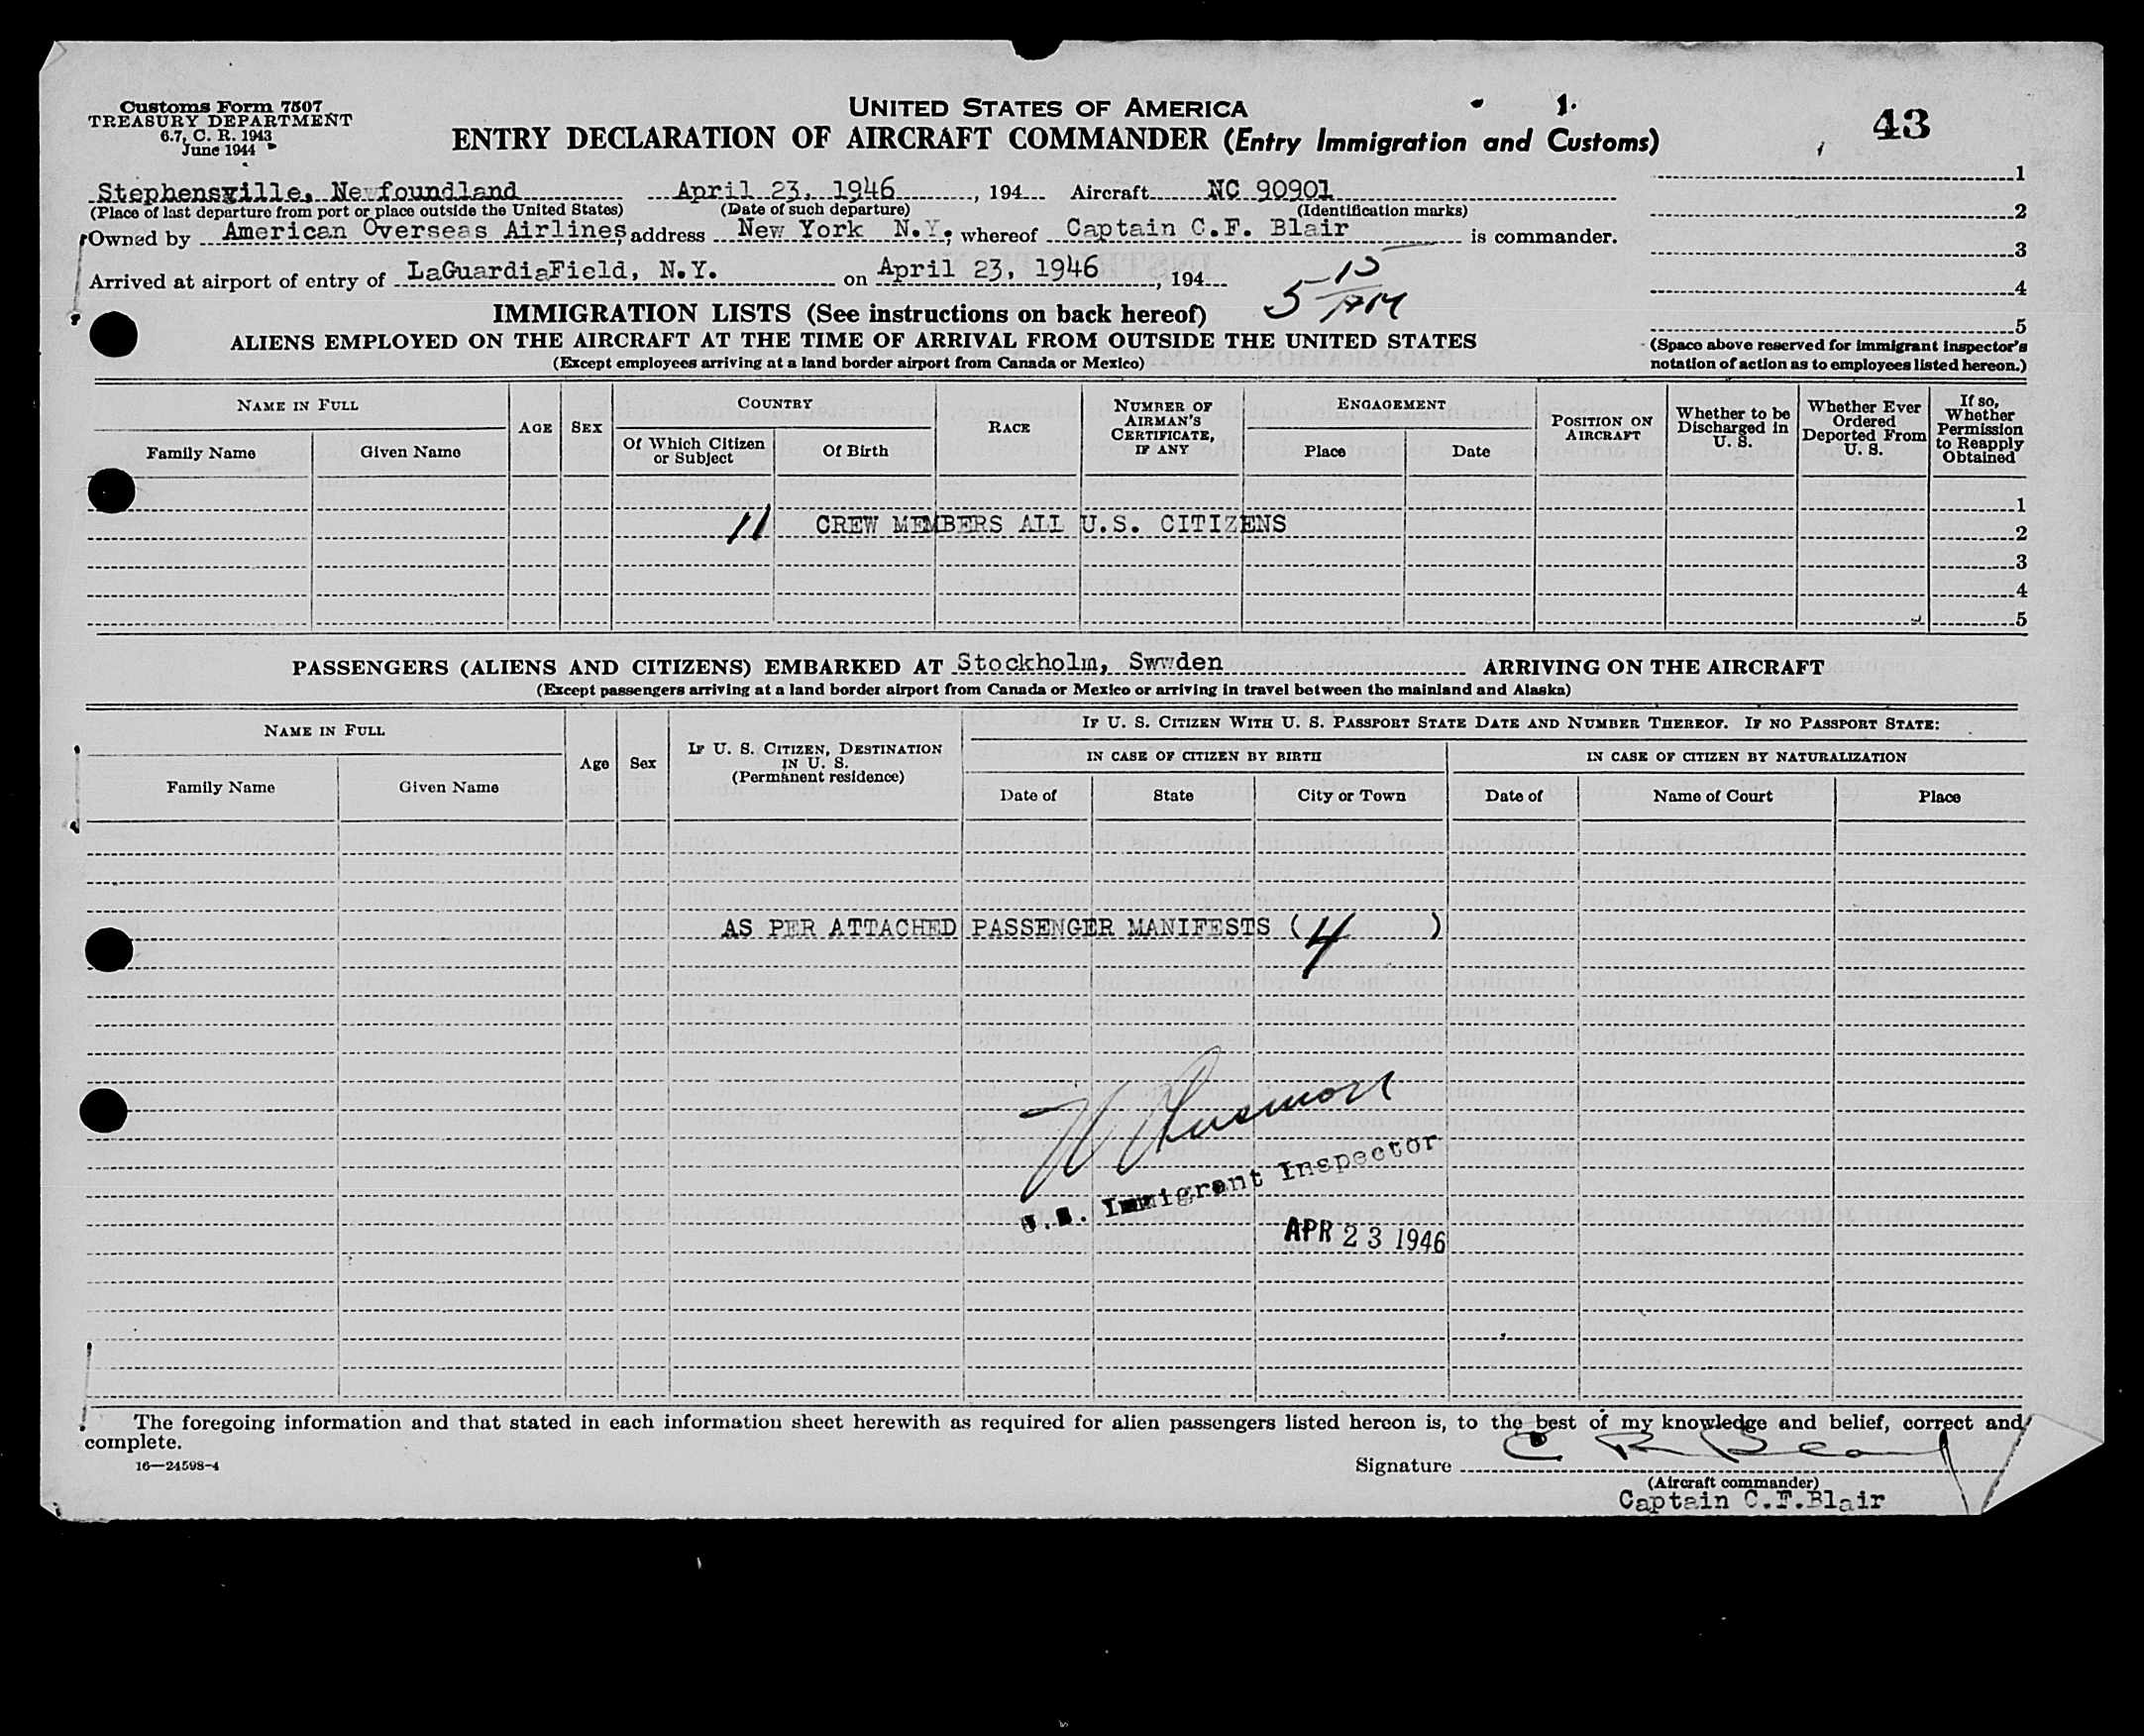 Customs Form 7507
TREASURY DEPARTMENT
6.7, C. R. 1943
June 1944
UNITED STATES OF AMERICA
1.
43
ENTRY DECLARATION OF AIRCRAFT COMMANDER (Entry Immigration and Customs)
Stephensville, Newfoundland April 23, 1946, 194 Aircraft NC 90901
(Place of last departure from port or place outside the United States) (Date of such departure) (Identification marks)
Owned by American Overseas Airlines, address New York N.Y., whereof Captain C.F. Blair is commander.
Arrived at airport of entry of LaGuardiaField, N.Y. on April 23, 1946, 194
5 15 AM
1
2
3
4
5
(Space above reserved for immigrant inspector's
notation of action as to employees listed hereon.)
IMMIGRATION LISTS (See instructions on back hereof)
ALIENS EMPLOYED ON THE AIRCRAFT AT THE TIME OF ARRIVAL FROM OUTSIDE THE UNITED STATES
(Except employees arriving at a land border airport from Canada or Mexico)
NAME IN FULL
Family Name Given Name
AGE SEX
COUNTRY
Of Which Citizen or Subject Of Birth
RACE
NUMBER OF AIRMAN'S CERTIFICATE, IF ANY
ENGAGEMENT
Place Date
POSITION ON AIRCRAFT
Whether to be Discharged in U. S.
Whether Ever Ordered Deported From U. S.
If so, Whether Permission to Reapply Obtained
1
11 CREW MEMBERS ALL U.S. CITIZENS
2
3
4
5
PASSENGERS (ALIENS AND CITIZENS) EMBARKED AT Stockholm, Sweden ARRIVING ON THE AIRCRAFT
(Except passengers arriving at a land border airport from Canada or Mexico or arriving in travel between the mainland and Alaska)
NAME IN FULL
Family Name Given Name
Age Sex
IF U. S. CITIZEN, DESTINATION IN U. S.
(Permanent residence)
IF U. S. CITIZEN WITH U. S. PASSPORT STATE DATE AND NUMBER THEREOF. IF NO PASSPORT STATE:
IN CASE OF CITIZEN BY BIRTH IN CASE OF CITIZEN BY NATURALIZATION
Date of State City or Town Date of Name of Court Place
AS PER ATTACHED PASSENGER MANIFESTS ( 4 )
U.S. Immigrant Inspector
APR 23 1946
The foregoing information and that stated in each information sheet herewith as required for alien passengers listed hereon is, to the best of my knowledge and belief, correct and
complete.
16—24598-4
Signature
(Aircraft commander)
Captain C.F.Blair